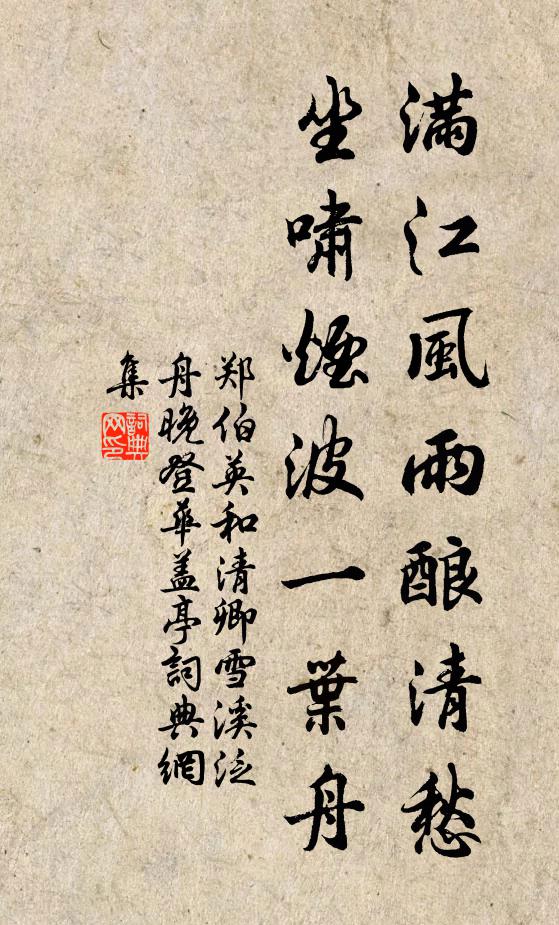 满江風雨酿清愁
坐嘯煙波一葉舟
郑伯英和清卿雪溪泛
舟晚登華盖亭詞典網
集
詞典网印